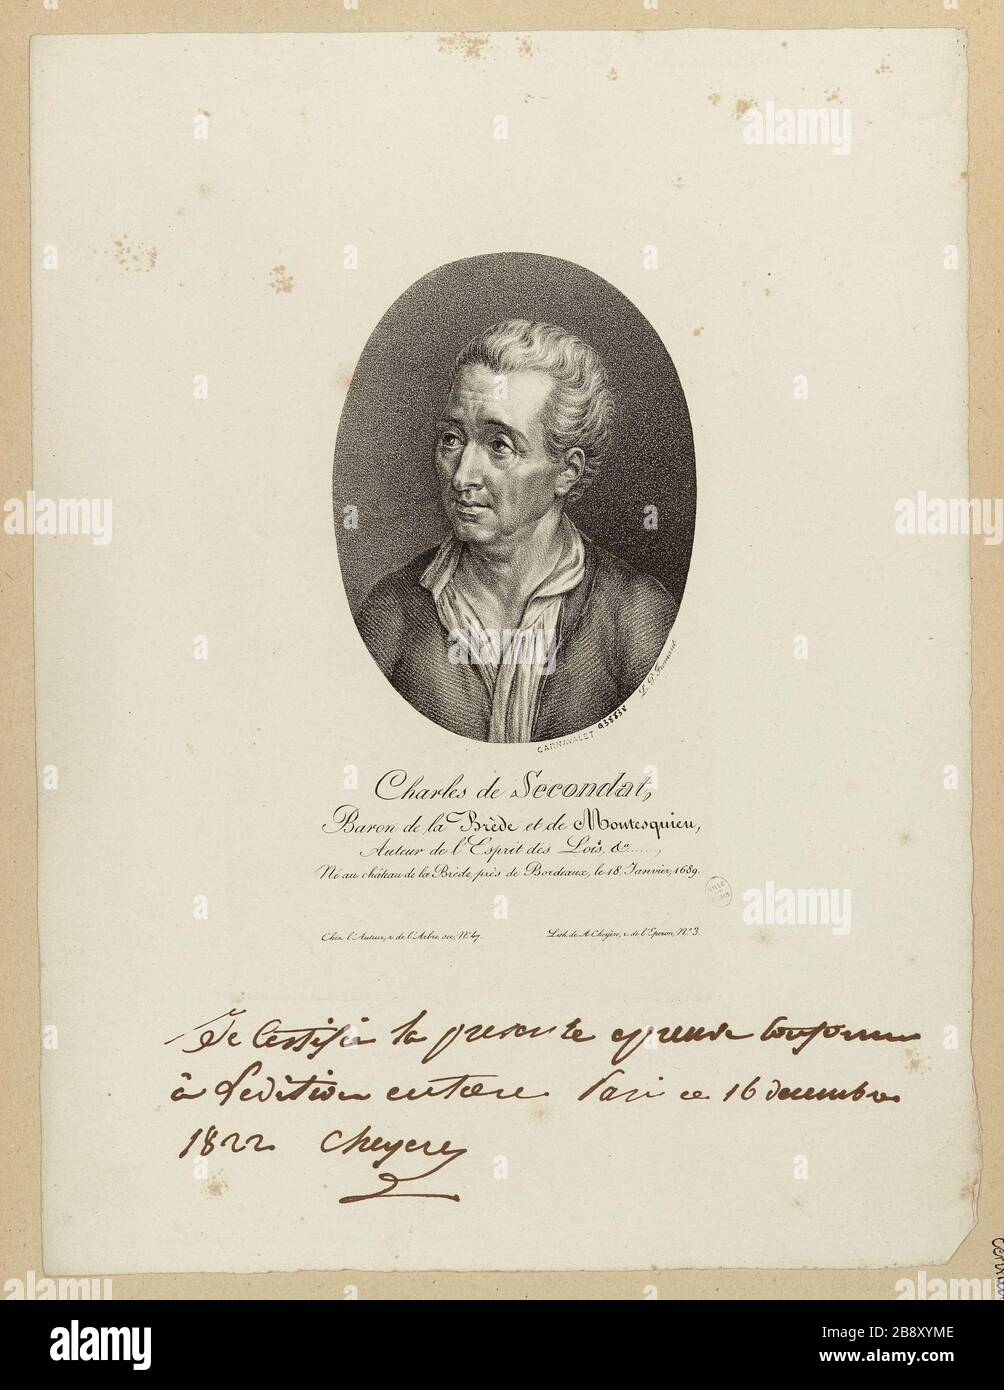 L. P. 
CARNAVALET G38838
Charles de Secondat,
Baron de la Brède et de Montesquieu,
Auteur de l'Esprit des Lois, &a.......,
Né au château de la Brède, près de Bordeaux, le 18 Janvier, 1689.
VILLE DE PARIS
Chez l'Auteur, r. de l'Arbre sec, N.º 47.
Lith. de A. Cheyère, r. de l'Eperon, N.º 3.
Je Certifie la presente epreuve Conforme
à l'edition entiere Paris ce 16 decembre
1822 Cheyere
alamy
Image ID: 2B8XYME
www.alamy.com